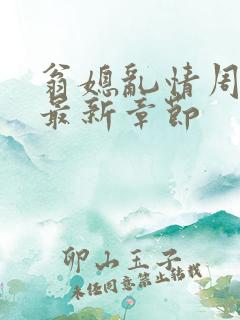 翁媳乱情周
最新章节
卯山玉子
未经同意禁止转载